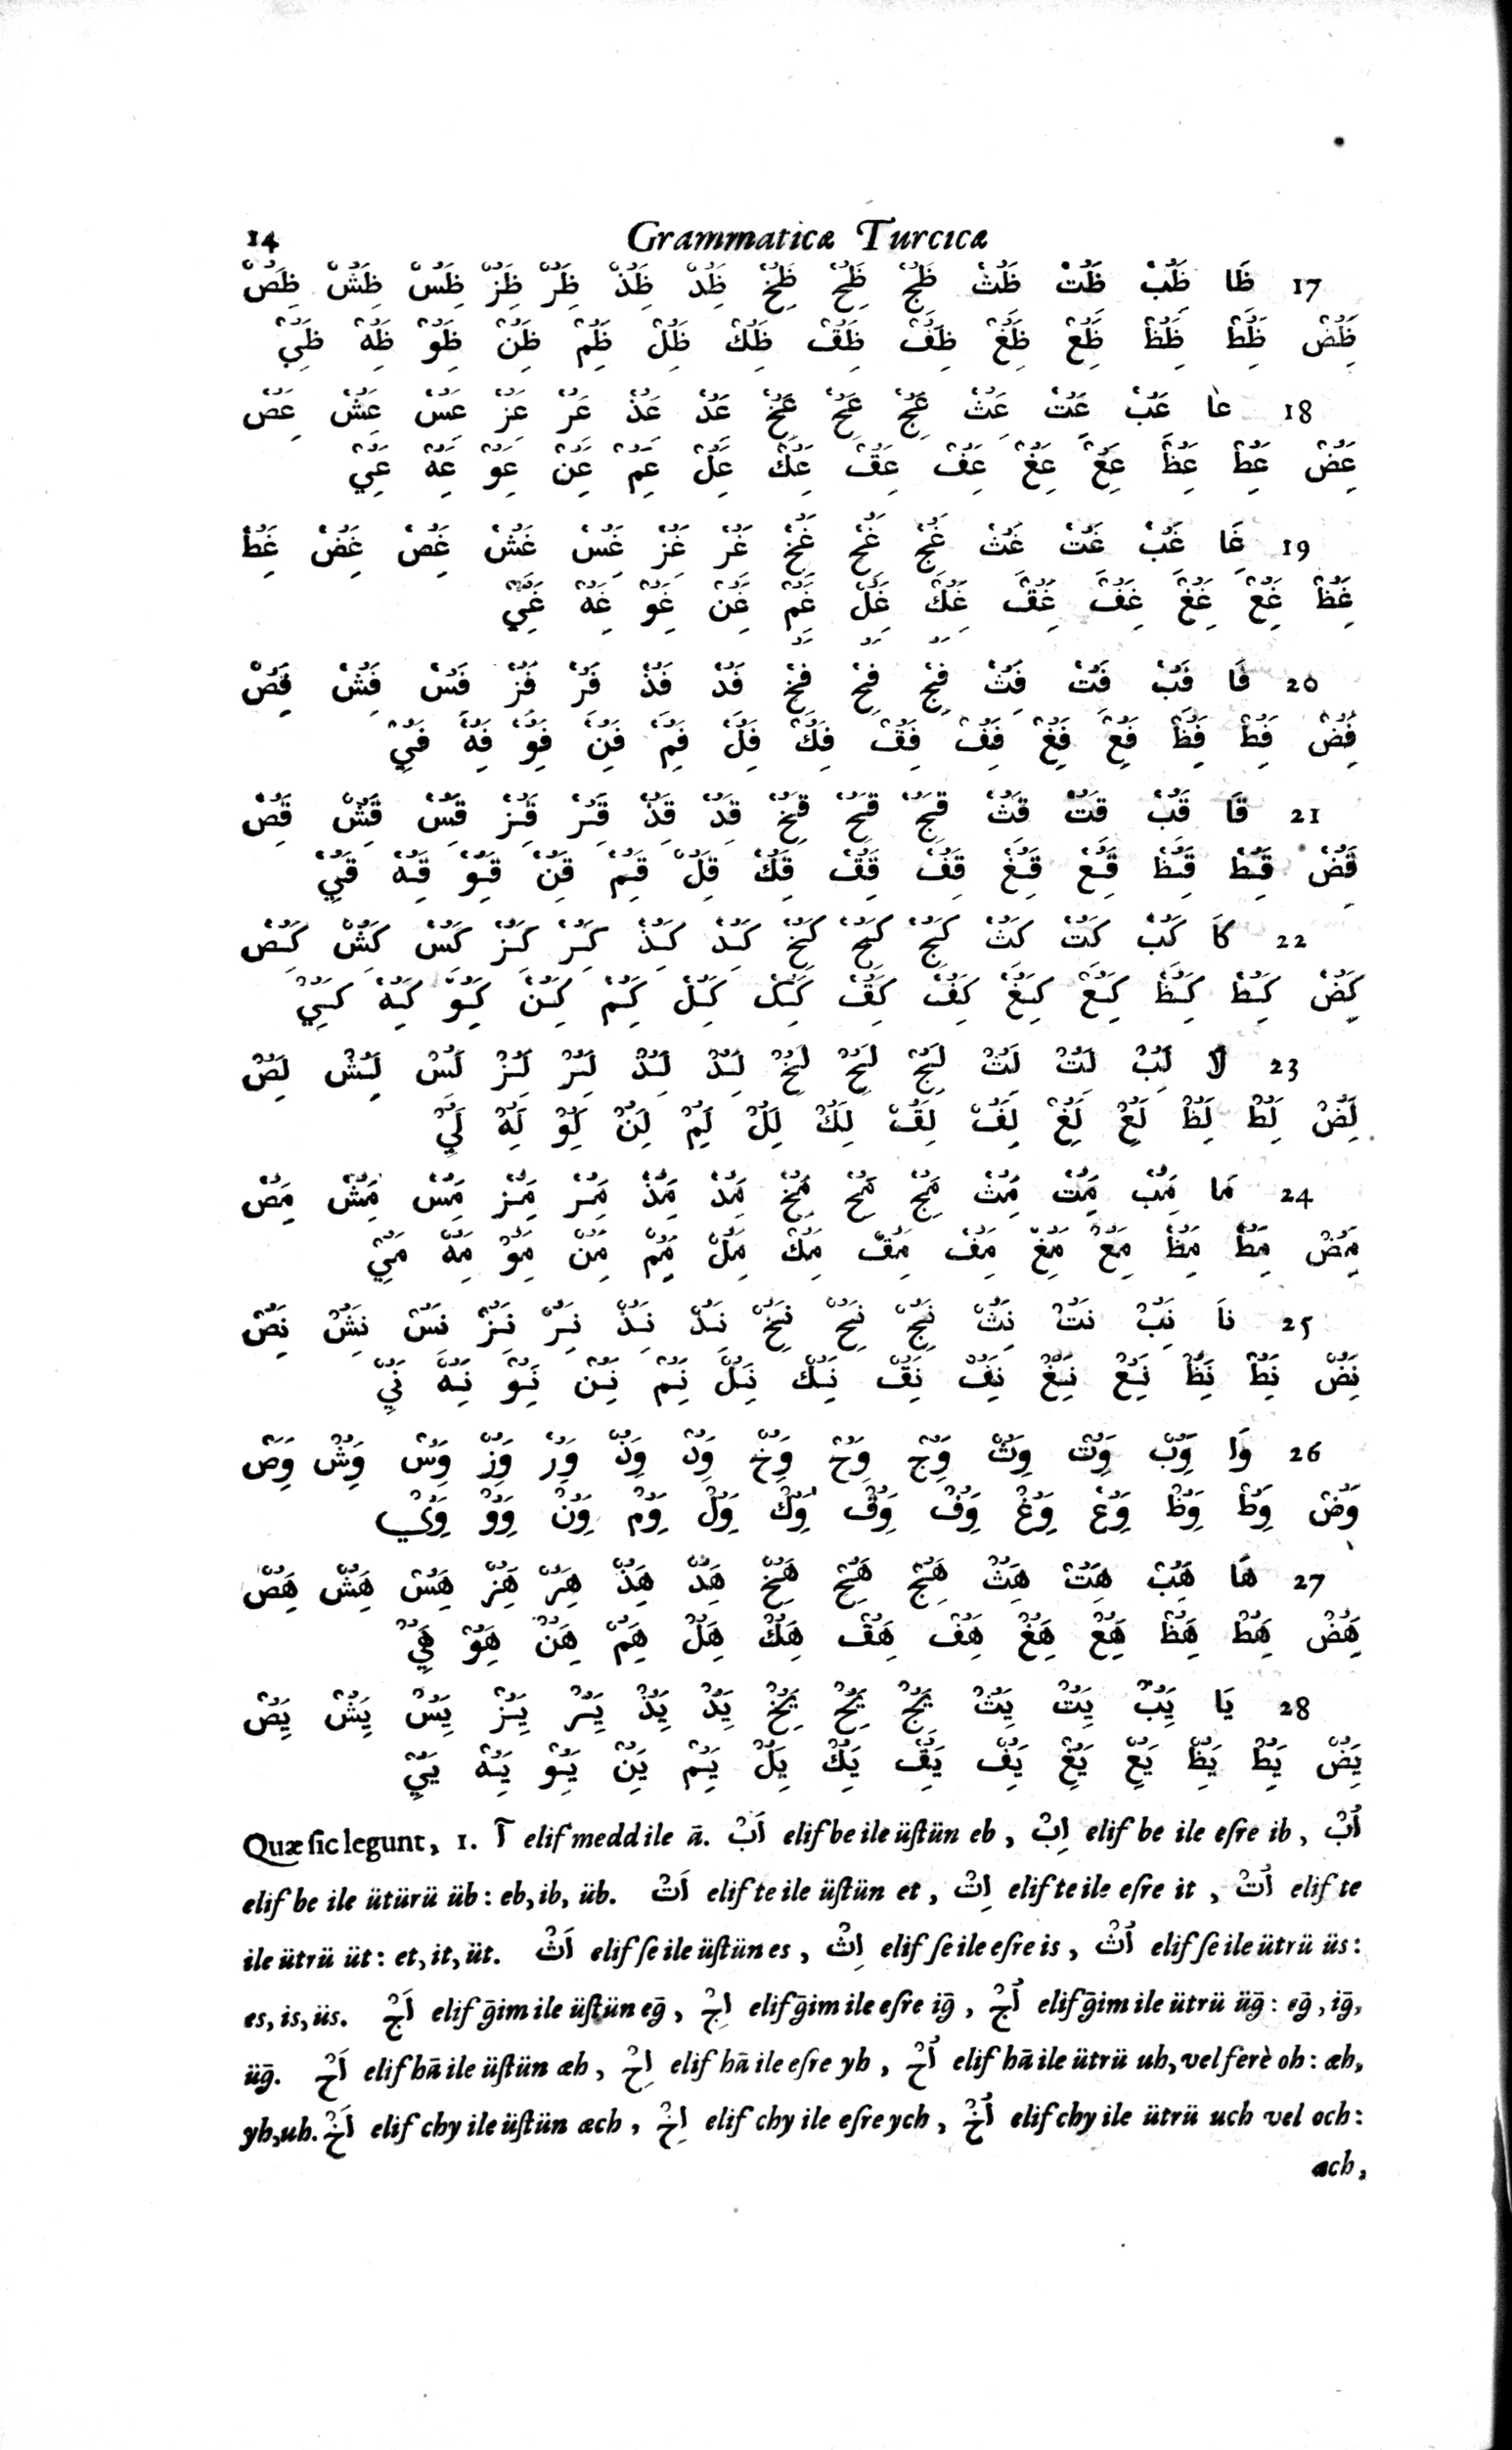 14 Grammaticæ Turcicæ
17 ظا ظب ظت ظث ظج ظح ظخ ظد ظذ ظر ظز ظس ظش ظص
ظض ظط ظظ ظع ظغ ظف ظق ظك ظل ظم ظن ظو ظه ظي
18 عا عب عت عث عج عح عخ عد عذ عر عز عس عش عص
عض عط عظ عع عغ عف عق عك عل عم عن عو عه عي
19 غا غب غت غث غج غح غخ غر غز غس غش غص غض غط
غظ غع غغ غف غق غك غل غم غن غو غه غي
20 فا فب فت فث فج فح فخ فد فذ فر فز فس فش فص
فض فط فظ فع فغ فف فق فك فل فم فن فو فه في
21 قا قب قت قث قج قح قخ قد قذ قر قز قس قش قص
قض قط قظ قع قغ قف قق قك قل قم قن قو قه قي
22 كا كب كت كث كج كح كخ كد كذ كر كز كس كش كص
كض كط كظ كع كغ كف كق كك كل كم كن كو كه كي
23 لا لب لت لث لج لح لخ لد لذ لر لز لس لش لص
لض لط لظ لع لغ لف لق لك لل لم لن لو له لي
24 ما مب مت مث مج مح مخ مد مذ مر مز مس مش مص
مض مط مظ مع مغ مف مق مك مل مم من مو مه مي
25 نا نب نت نث نج نح نخ ند نذ نر نز نس نش نص
نض نط نظ نع نغ نف نق نك نل نم نن نو نه ني
26 وا وب وت وث وج وح وخ ود وذ ور وز وس وش وص
وض وط وظ وع وغ وف وق وك ول وم ون وو وي
27 ها هب هت هث هج هح هخ هد هذ هر هز هس هش هص
هض هط هظ هع هغ هف هق هك هل هم هن هو هي
28 يا يب يت يث يج يح يخ يد يذ ير يز يس يش يص
يض يط يظ يع يغ يف يق يك يل يم ين يو يه يي
Quæ ſic legunt, 1. آ elif medd ile ā. اَبْ elif be ile üſtün eb, اِبْ elif be ile eſre ib, اُبْ
elif be ile ütürü üb: eb, ib, üb. اَتْ elif te ile üſtün et, اِتْ elif te ile eſre it, اُتْ elif te
ile ütrü üt: et, it, üt. اَثْ elif ſe ile üſtün es, اِثْ elif ſe ile eſre is, اُثْ elif ſe ile ütrü üs:
es, is, üs. اَجْ elif ḡim ile üſtün eḡ, اِجْ elif ḡim ile eſre iḡ, اُجْ elif ḡim ile ütrü üḡ: eḡ, iḡ,
üḡ. اَحْ elif hā ile üſtün æh, اِحْ elif hā ile eſre yh, اُحْ elif hā ile ütrü uh, vel ferè oh: æh,
yh, uh. اَخْ elif chy ile üſtün æch, اِخْ elif chy ile eſre ych, اُخْ elif chy ile ütrü uch vel och:
æch,